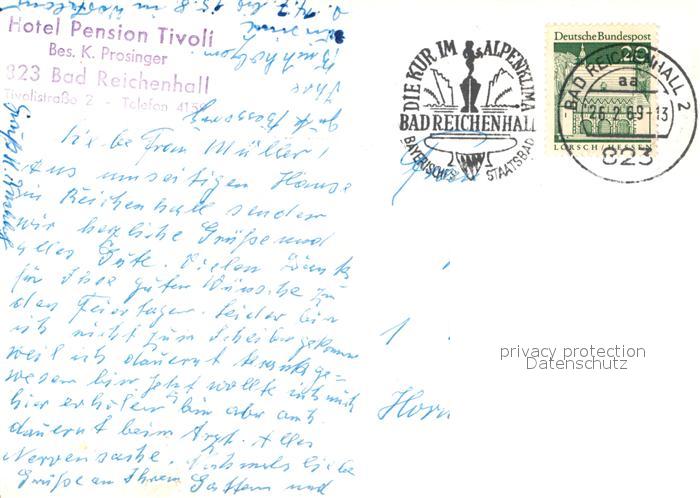 Hotel Pension Tivoli
Bes. K. Prosinger
823 Bad Reichenhall
Tivolistraße 2 - Telefon
DIE KUR IM ALPENKLIMA
BAD REICHENHALL
BAYERISCHES STAATSBAD
Deutsche Bundespost
20
LORSCH/HESSEN
BAD REICHENHALL 2
aa
26.2.69-13
823
Liebe Frau Müller!
Aus umseitigen Hause
in Reichenhall senden
wir herzliche Grüße und
alles Gute. Vielen Dank
für Ihre guten Wünsche zu
den Feiertagen. Leider bin
ich nicht zum Schreiben gekommen
weil ich dauernd krank ge-
wesen bin. Jetzt wollte ich mich
hier erholen bin aber auch
dauernd beim Arzt. Alles
Nervensache. Nochmals liebe
Grüße an Ihrem Gatten und
1
Horn
privacy protection
Datenschutz